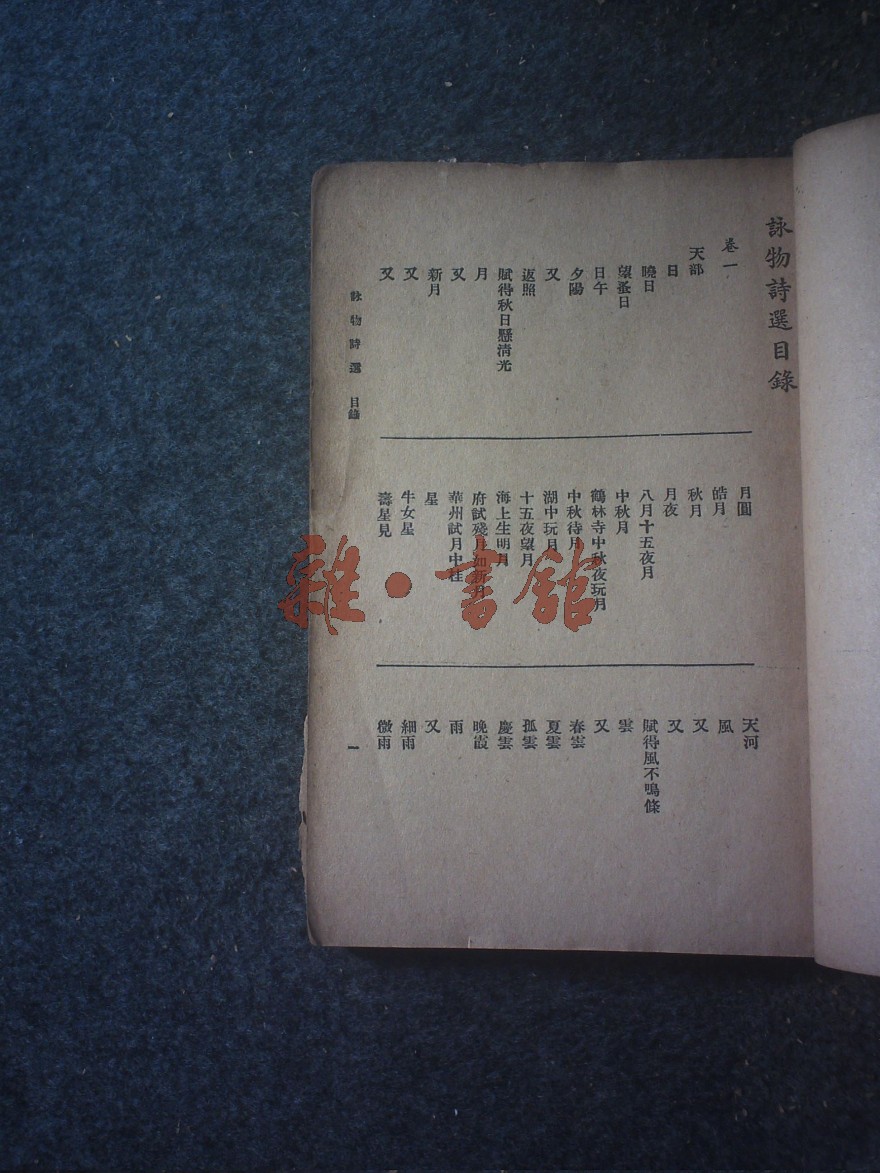 詠物詩選目錄
卷一
天部
日
曉日
望蚤日
日午
夕陽
又
返照
賦得秋日懸清光
月
又
新月
又
又
月圓
皓月
秋月
月夜
八月十五夜月
中秋月
鶴林寺中秋夜玩月
中秋待月
湖中玩月
十五夜望月
海上生明月
府試殘月如新月
華州試月中桂
星
牛女星
壽星見
天河
風
又
又
賦得風不鳴條
雲
又
春雲
夏雲
孤雲
慶雲
晚霞
雨
又
細雨
微雨
詠物詩選 目錄
一
雜·書館